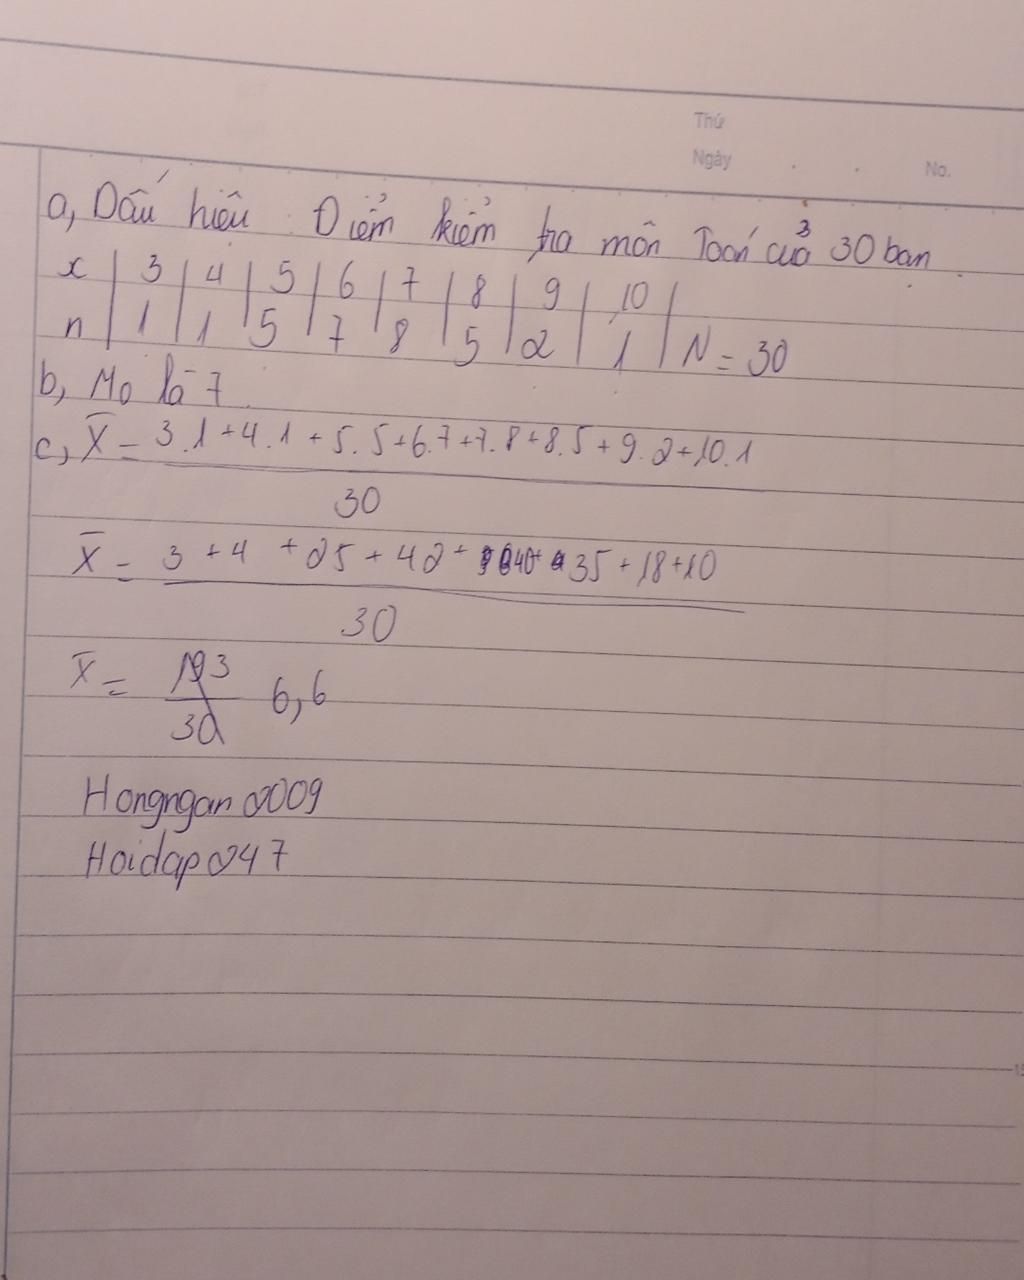 Thứ
Ngày . . No.
a, Dấu hiệu : Điểm kiểm tra môn Toán củả 30 bạn.
x | 3 | 4 | 5 | 6 | 7 | 8 | 9 | 10 |
n | 1 | 1 | 5 | 7 | 8 | 5 | 2 | 1 | N = 30
b, Mo là 7
c, X̄ = 3.1+4.1+5.5+6.7+7.8+8.5+9.2+10.1
30
X̄ = 3+4+25+42+ 40+ 35+18+10
30
X̄ = 193 6,6
30
Hongngan2009
Hoidap247